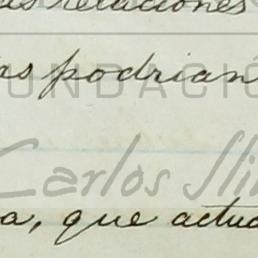 relaciones
podrian
FUNDACIÓ
Carlos Sli
a, que actua